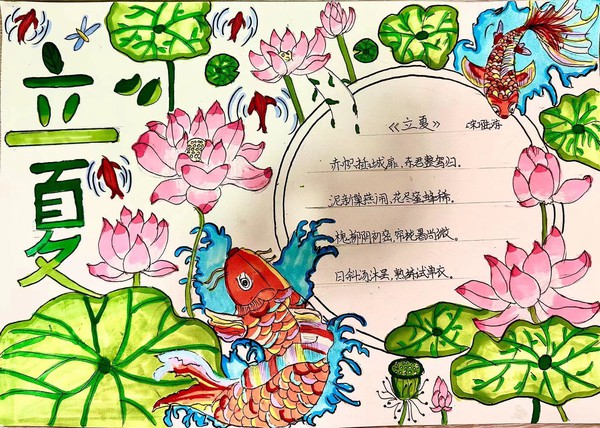 立夏
《立夏》 宋·陆游
赤帜插城扉，东君整驾归。
泥新巢燕闹，花尽蜜蜂稀。
槐柳阴初密，帘栊暑尚微。
日斜汤沐罢，熟练试单衣。